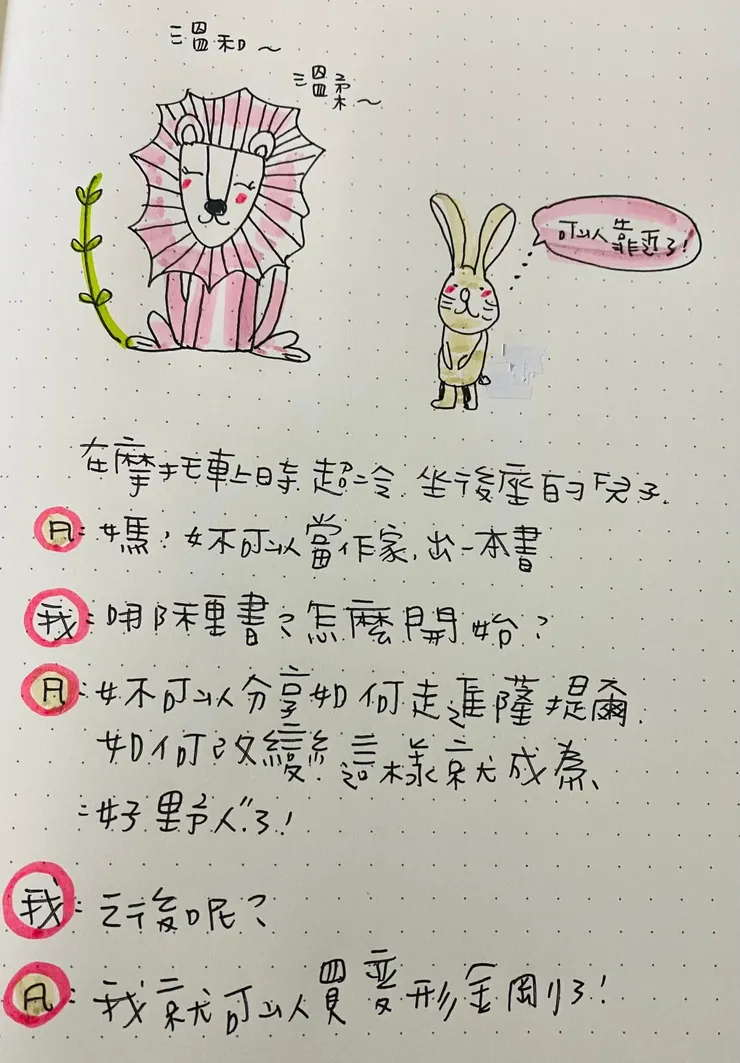 溫和~
溫柔~
可以靠近了!
在摩托車上時超冷.坐後座的「兒子.
凡:媽!妳可以當作家,出一本書
我:哪種書?怎麼開始?
凡:妳可以分享如何走進薩提爾.
如何改變.這樣就成為、
"好野人"了!
我:之後呢?
凡:我就可以買變形金剛了!